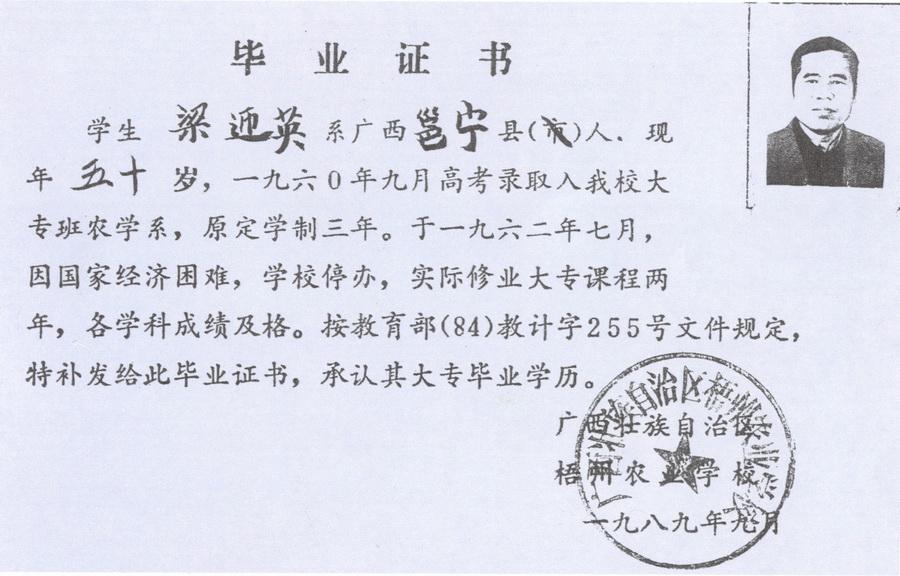 毕业证书
学生 梁迎英 系广西邕宁县(市)人．现
年 五十 岁，一九六0年九月高考录取入我校大
专班农学系，原定学制三年。于一九六二年七月，
因国家经济困难，学校停办，实际修业大专课程两
年，各学科成绩及格。按教育部(84)教计字255号文件规定，
特补发给此毕业证书，承认其大专毕业学历。
广西壮族自治区
梧州农业学校
一九八九年九月
广西壮族自治区梧州农业学校